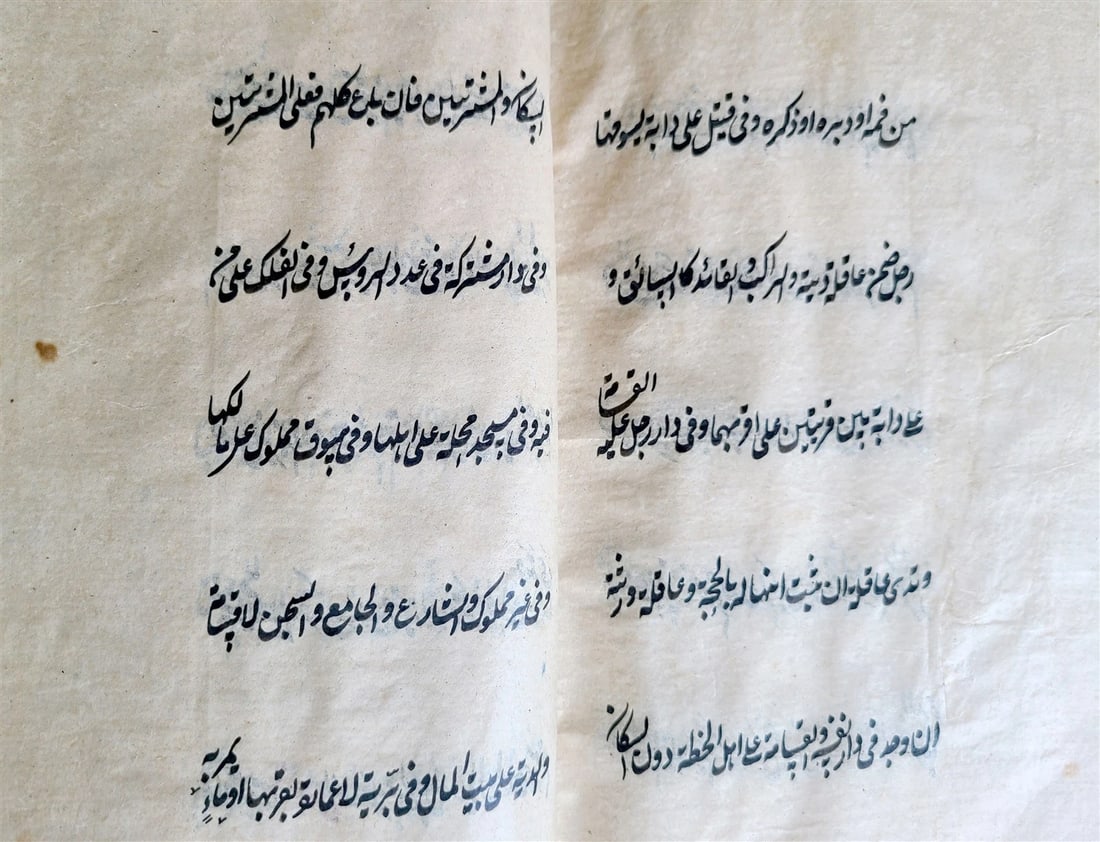 من فمه او دبره او ذكره وفى قتيل على دابة يسوقها
رجل ضمن عاقلة ديته والراكب والقائد كالسائق و
على دابة بين قريتين على اقربهما وفى دار رجل عليه القسامة
وتدى عاقلته ان ثبت انها له بالحجة وعاقلة ورثته
ان وجد فى دار نفسه والقسامة على اهل الخطة دون السكان
السكان والمشتريين فان باع كلهم فعلى المشتريين
وفى دار مشتركة فى عدد الرويس وفى الفلك على من
فيه وفى مسجد محلة على اهلها وفى سوق مملوك على مالكها
وفى غير مملوك والشارع والجامع والسجن لا قسامة
والدية على بيت المال وفى برية لا عمارة بقربها او ماء يمر به